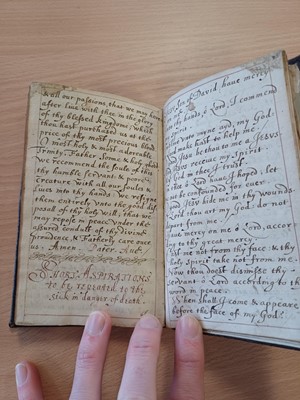 & all our passions, that we may
after live with thee in the glory
of thy blessed kingdome, which
thou hast purchased us at the
price of thy most precious blood
O most holy & most adorable
Trinity, Father Sonn & holy Ghost
we recommend the soule of this
thy humble servant & poore
creature with all our soules &
lives into thy hands: we resigne
them entirely unto the dis-
posall of thy holy will, that we
may repose in peace under the
assured conduct of thy divine
providence & Fatherly care over
us. Amen. Pater. Ave.
SHORT ASPIRATIONS
to be repeated to the
sick in danger of death.
of David have mercy
hands, ô Lord, I commend
unto myne aid, my God
make hast to help me
be thou to me a JESUS
receive my spirit
in thee I trust.
ô Lord have I hoped, let
be confounded for ever
JESU hide me in thy wounds
Lord thou art my God, do not
part from me.
have mercy on me ô Lord, accor
ing to thy great mercy.
Cast me not from thy face & thy
holy spirit take not from me.
Now thou dost dismisse thy
servant ô Lord according to thy
word in peace.
When shall I come & appeare
before the face of my God?